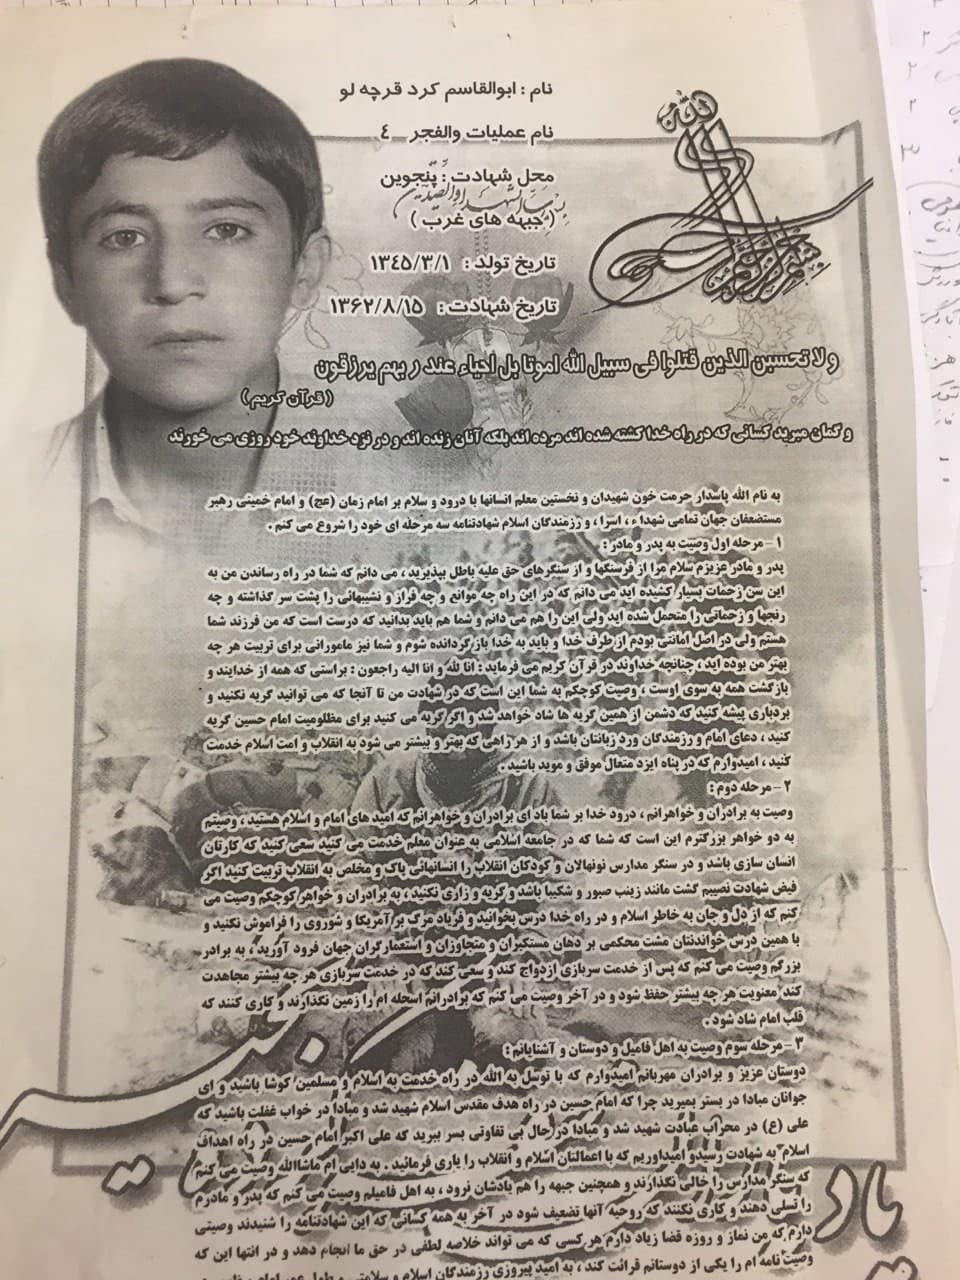 نام : ابوالقاسم کرد قرچه لو
نام عملیات والفجر ٤
محل شهادت : پنجوین
( جبهه های غرب )
تاریخ تولد : ۱۳۴۵/۳/۱
تاریخ شهادت : ۱۳۶۲/۸/۱۵
ولا تحسبن الذین قتلوا فی سبیل الله امواتا بل احیاء عند ربهم یرزقون
( قرآن کریم )
و گمان مبرید کسانی که در راه خدا کشته شده اند مرده اند بلکه آنان زنده اند و در نزد خداوند خود روزی می خورند
به نام الله پاسدار حرمت خون شهیدان و نخستین معلم انسانها با درود و سلام بر امام زمان (عج) و امام خمینی رهبر
مستضعفان جهان تمامی شهداء ، اسرا ، و رزمندگان اسلام شهادتنامه سه مرحله ای خود را شروع می کنم .
۱ – مرحله اول وصیت به پدر و مادر :
پدر و مادر عزیزم سلام مرا از فرسنگها و از سنگرهای حق علیه باطل بپذیرید ، می دانم که شما در راه رساندن من به
این سن زحمات بسیار کشیده اید می دانم که در این راه چه موانع و چه فراز و نشیبهائی را پشت سر گذاشته و چه
رنجها و زحماتی را متحمل شده اید ولی این را هم می دانم و شما هم باید بدانید که درست است که من فرزند شما
هستم ولی در اصل امانتی بودم از طرف خدا و باید به خدا بازگردانده شوم و شما نیز مامورانی برای تربیت هر چه
بهتر من بوده اید ، چنانچه خداوند در قرآن کریم می فرماید : انا لله و انا الیه راجعون : براستی که همه از خدایند و
بازگشت همه به سوی اوست ، وصیت کوچکم به شما این است که در شهادت من تا آنجا که می توانید گریه نکنید و
بردباری پیشه کنید که دشمن از همین گریه ها شاد خواهد شد و اگر گریه می کنید برای مظلومیت امام حسین گریه
کنید ، دعای امام و رزمندگان ورد زبانتان باشد و از هر راهی که بهتر و بیشتر می شود به انقلاب و امت اسلام خدمت
کنید ، امیدوارم که در پناه ایزد متعال موفق و موید باشید .
۲ – مرحله دوم :
وصیت به برادران و خواهرانم ، درود خدا بر شما باد ای برادران و خواهرانم که امید های امام و اسلام هستید ، وصیتم
به دو خواهر بزرگترم این است که شما که در جامعه اسلامی به عنوان معلم خدمت می کنید سعی کنید که کارتان
انسان سازی باشد و در سنگر مدارس نونهالان و کودکان انقلاب را انسانهائی پاک و مخلص به انقلاب تربیت کنید اگر
فیض شهادت نصیبم گشت مانند زینب صبور و شکیبا باشد و گریه و زاری نکنید ، به برادران و خواهر کوچکم وصیت می
کنم که از دل و جان به خاطر اسلام و در راه خدا درس بخوانید و فریاد مرگ بر آمریکا و شوروی را فراموش نکنید و
با همین درس خواندنتان مشت محکمی بر دهان مستکبران و متجاوزان و استعمارگران جهان فرود آورید ، به برادر
بزرگم وصیت می کنم که پس از خدمت سربازی ازدواج کند و سعی کند که در خدمت سربازی هر چه بیشتر مجاهدت
کند معنویت هر چه بیشتر حفظ شود و در آخر وصیت می کنم که برادرانم اسحله ام را زمین نگذارند و کاری کنند که
قلب امام شاد شود .
۳ – مرحله سوم وصیت به اهل فامیل و دوستان و آشنایانم :
دوستان عزیز و برادران مهربانم امیدوارم که با توسل به الله در راه خدمت به اسلام و مسلمین کوشا باشید و ای
جوانان مبادا در بستر بمیرید چرا که امام حسین در راه هدف مقدس اسلام شهید شد و مبادا در خواب غفلت باشید که
علی (ع) در محراب عبادت شهید شد و مبادا در حال بی تفاوتی بسر ببرید که علی اکبر امام حسین در راه اهداف
اسلام به شهادت رسید و امیداوریم که با اعمالتان اسلام و انقلاب را یاری فرمائید . به دایی ام ماشاالله وصیت می کنم
که سنگر مدارس را خالی نگذارند و همچنین جبهه را هم یادشان نرود ، به اهل فامیلم وصیت می کنم که پدر و مادرم
را تسلی دهند و کاری نکنند که روحیه آنها تضعیف شود در آخر به همه کسانی که این شهادتنامه را شنیدند وصیتی
دارم که من نماز و روزه قضا زیاد دارم هر کسی که می تواند خلاصه لطفی در حق ما انجام دهد و در انتها این که
وصیت نامه ام را یکی از دوستانم قرائت کند ، به امید پیروزی رزمندگان اسلام و سلامتی و طول عمر امام